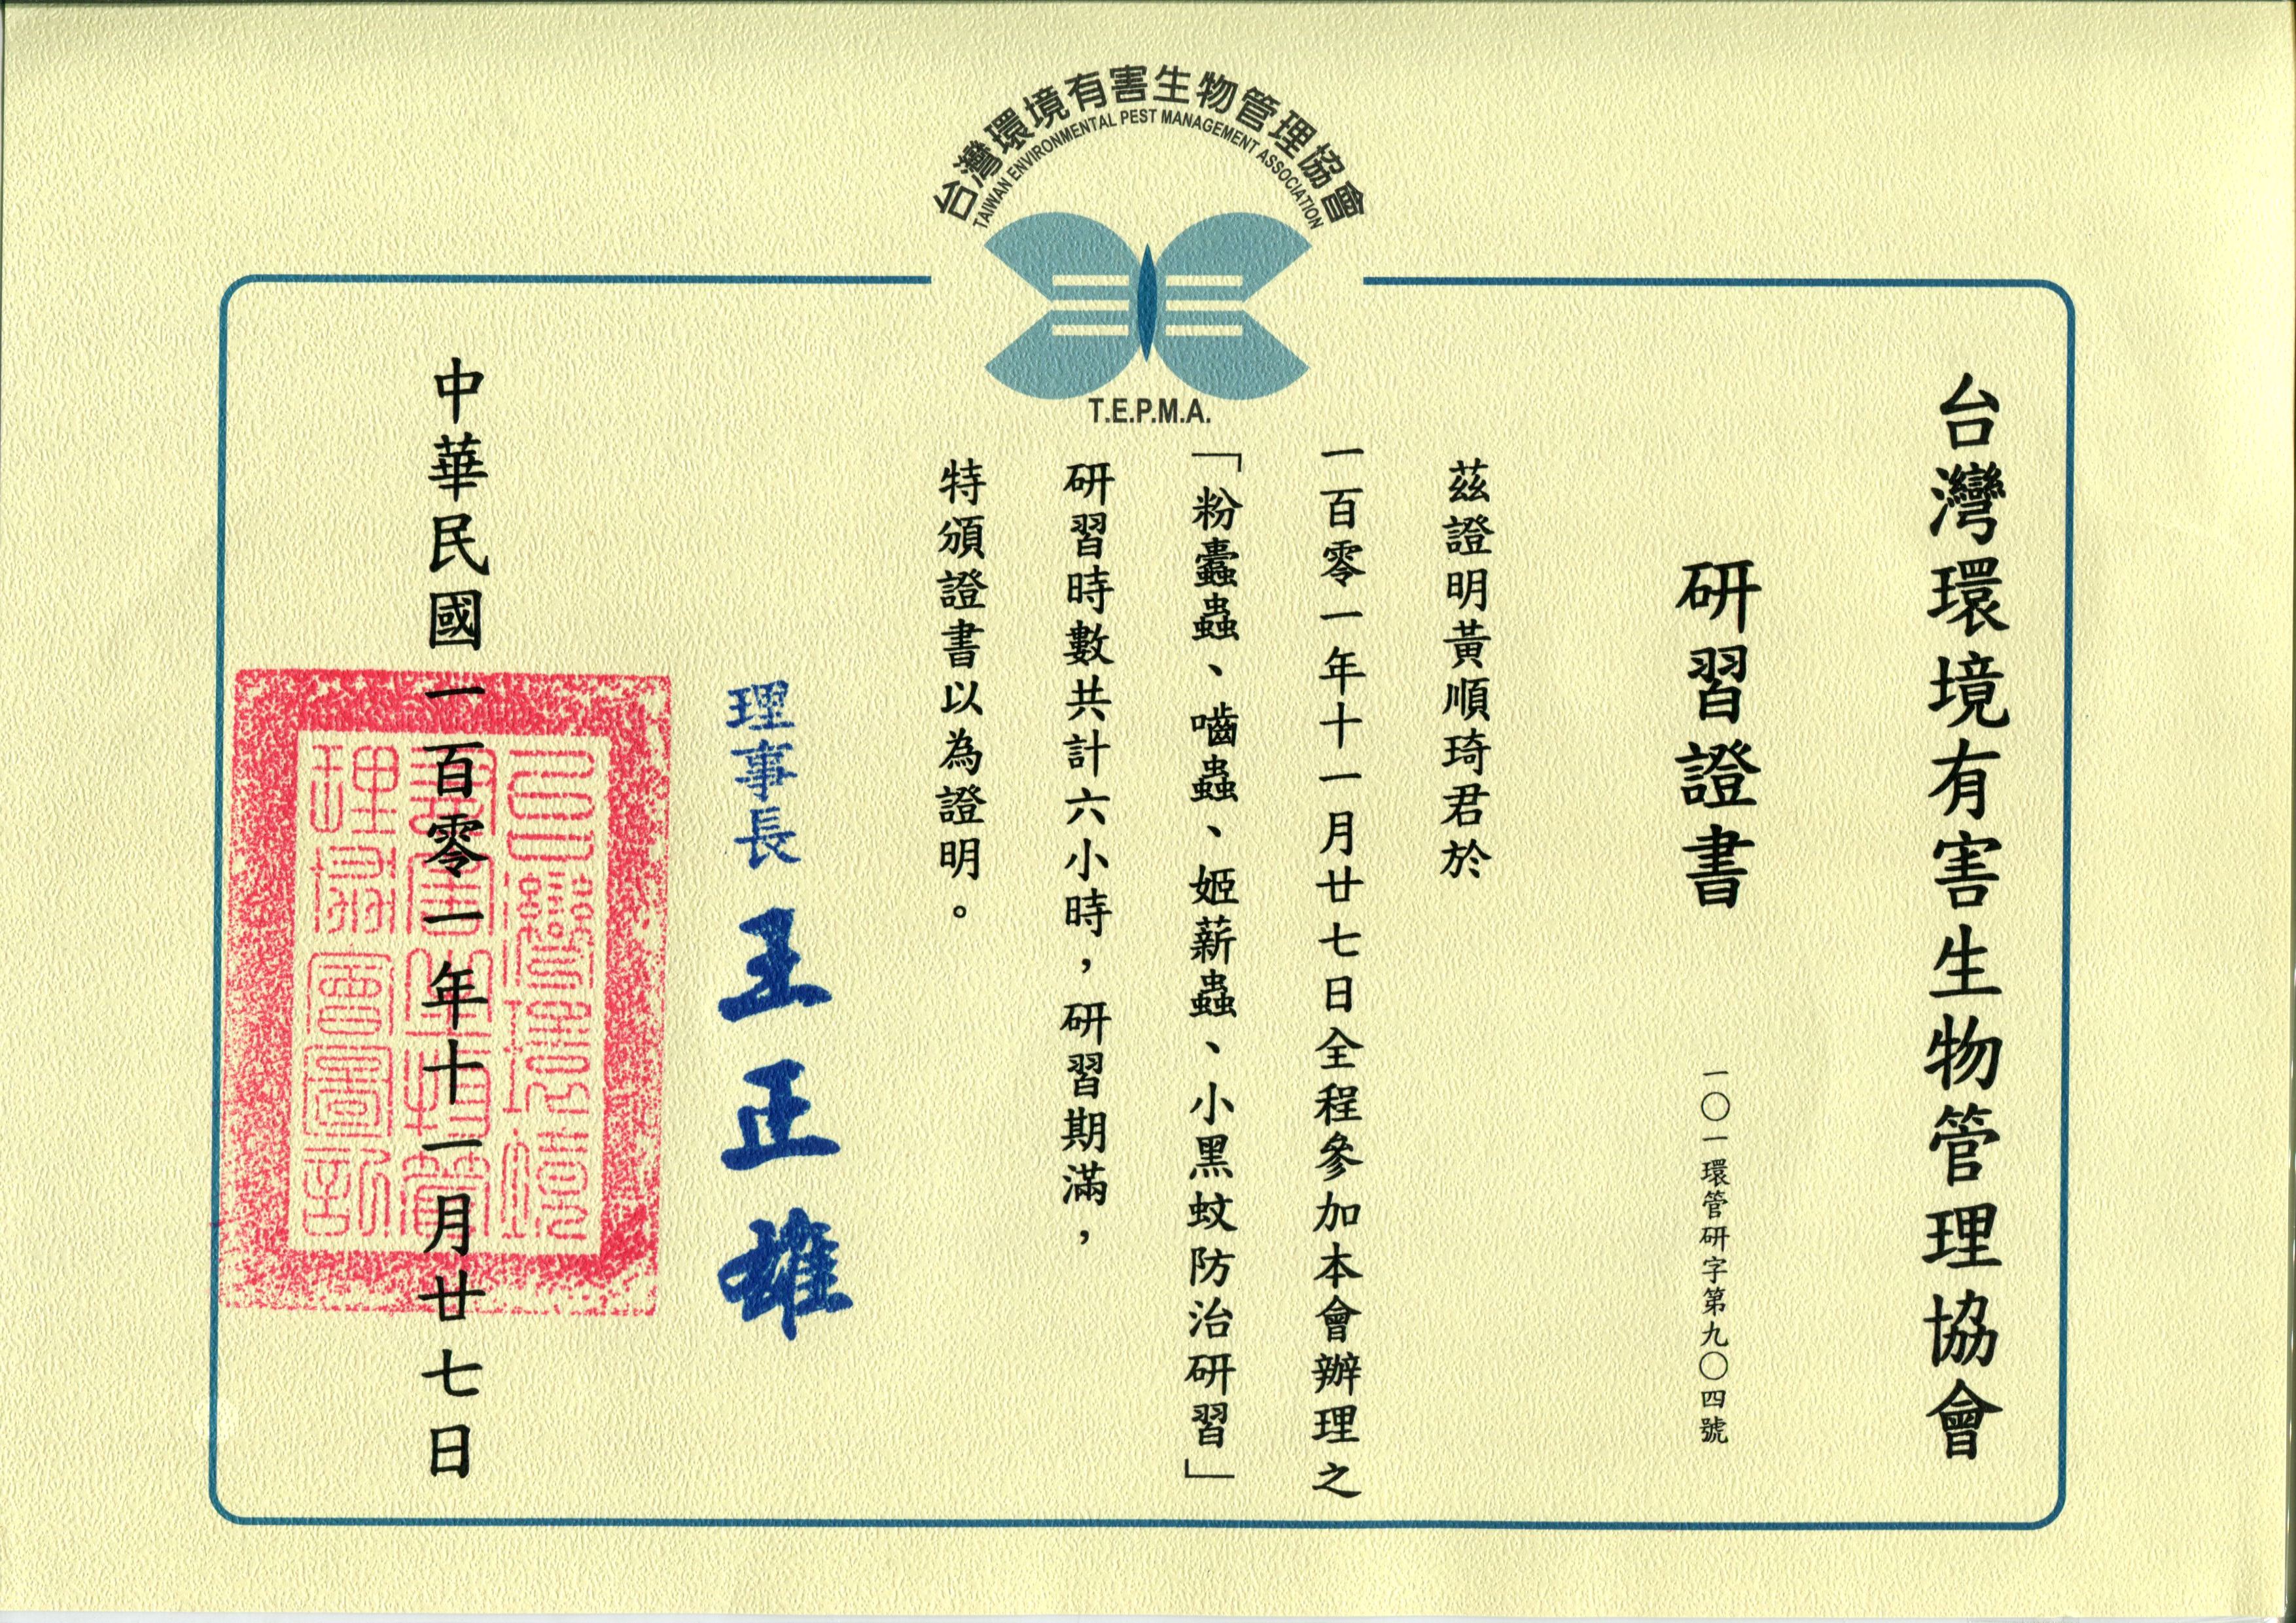 台灣環境有害生物管理協會
TAIWAN ENVIRONMENTAL PEST MANAGEMENT ASSOCIATION
T.E.P.M.A.
台灣環境有害生物管理協會
研習證書
一〇一環管研字第九〇四號
茲證明黃順琦君於
一百零一年十一月廿七日全程參加本會辦理之
「粉蠹蟲、嚙蟲、姬薪蟲、小黑蚊防治研習」
研習時數共計六小時，研習期滿，
特頒證書以為證明。
理事長 王正雄
中華民國一百零一年十一月廿七日
台灣環境
有害生物管
理協會圖記